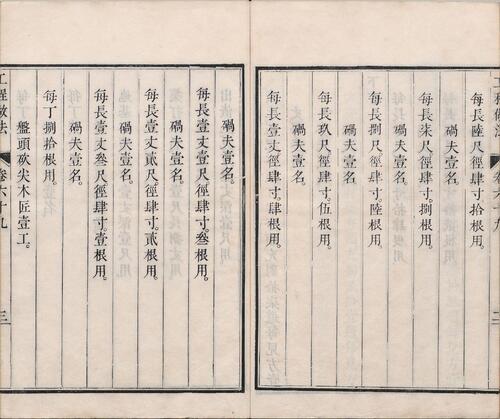 每長陸尺徑肆寸拾根用
碢夫壹名
每長柒尺徑肆寸捌根用
碢夫壹名
每長捌尺徑肆寸陸根用
碢夫壹名
每長玖尺徑肆寸伍根用
碢夫壹名
每長壹丈徑肆寸肆根用
碢夫壹名
每長壹丈壹尺徑肆寸叁根用
碢夫壹名
每長壹丈貳尺徑肆寸貳根用
碢夫壹名
每長壹丈叁尺徑肆寸壹根用
碢夫壹名
每丁捌拾根用
盤頭砍尖木匠壹工
工程做法
卷六十九
三